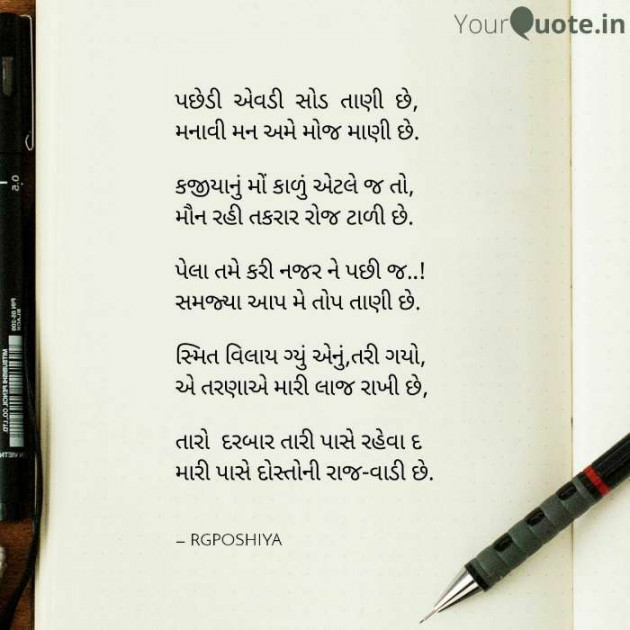 YourQuote.in
પછેડી એવડી સોડ તાણી છે,
મનાવી મન અમે મોજ માણી છે.
કજીયાનું મોં કાળું એટલે જ તો,
મૌન રહી તકરાર રોજ ટાળી છે.
પેલા તમે કરી નજર ને પછી જ..!
સમજ્યા આપ મે તોપ તાણી છે.
સ્મિત વિલાય ગ્યું એનું,તરી ગયો,
એ તરણાએ મારી લાજ રાખી છે,
તારો દરબાર તારી પાસે રહેવા દ
મારી પાસે દોસ્તોની રાજ-વાડી છે.
– RGPOSHIYA
0.5